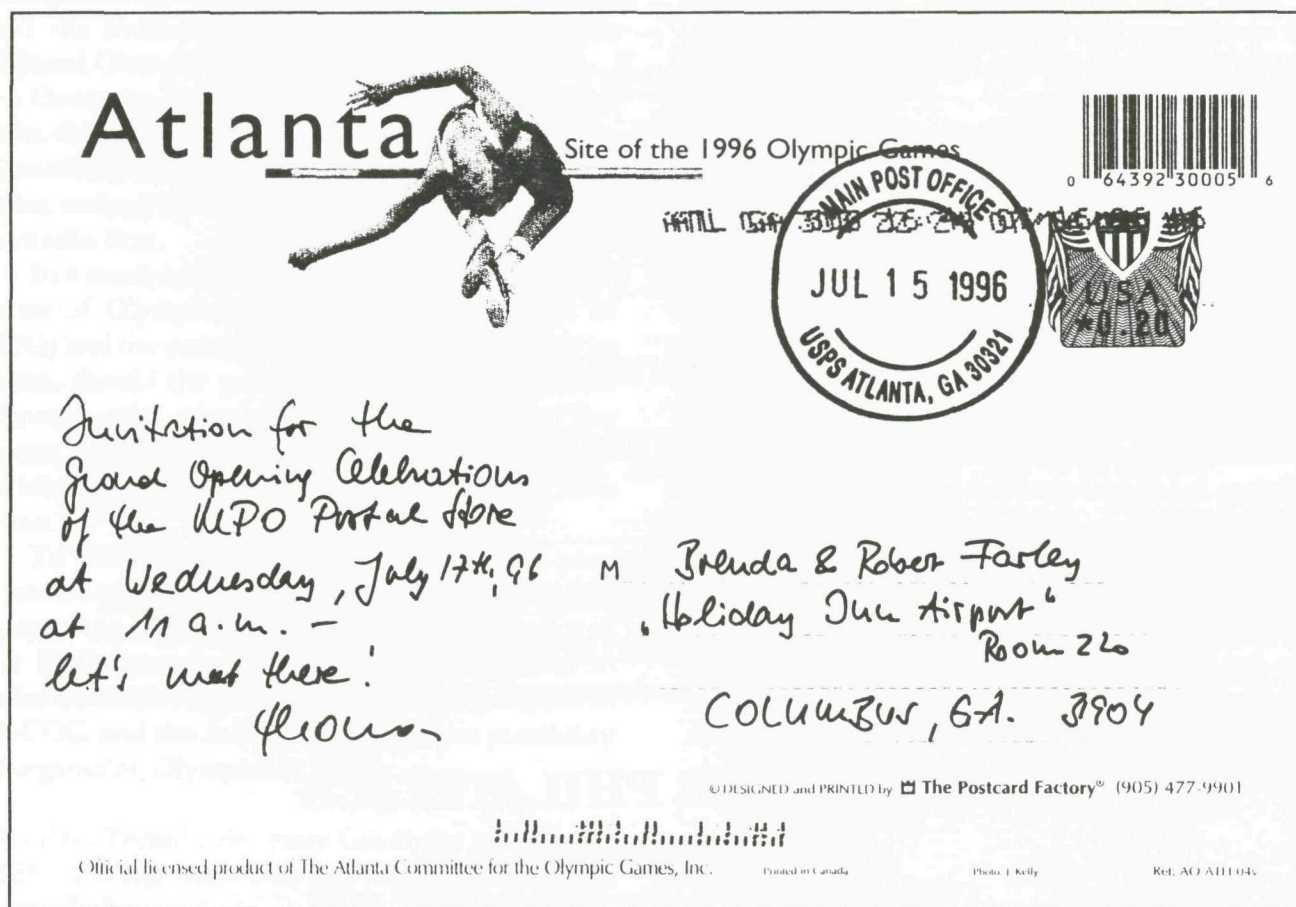 Atlanta
Site of the 1996 Olympic Games
0 64392 30005 6
MAIN POST OFFICE
JUL 15 1996
USPS ATLANTA, GA 30321
USA
*0.20
Invitation for the
Grand Opening Celebrations
of the MPO Postal Store
at Wednesday, July 17th, 96
at 11 a.m. –
let's meet there!
M Brenda & Robert Farley
"Holiday Inn Airport"
Room 220
COLUMBUS, GA. 3904
© DESIGNED and PRINTED by The Postcard Factory® (905) 477-9901
Official licensed product of The Atlanta Committee for the Olympic Games, Inc.
Printed in Canada
Photo: J. Kelly